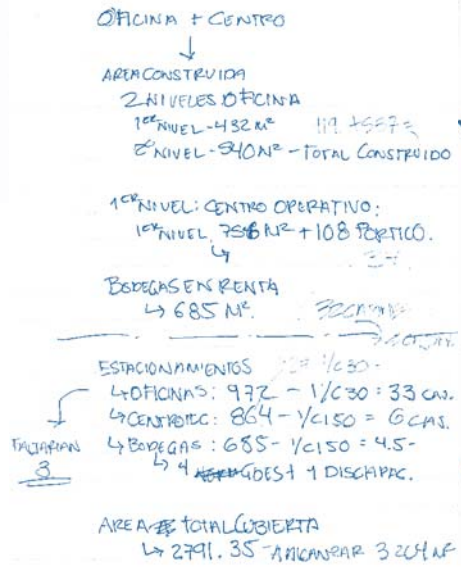 OFICINA + CENTRO
AREA CONSTRUIDA
2 NIVELES OFICINA
1ER NIVEL - 432 M²
2º NIVEL - 540 M² - TOTAL CONSTRUIDO
1ER NIVEL: CENTRO OPERATIVO:
1ER NIVEL. 756 M² + 108 PORTICO.
BODEGAS EN RENTA
685 M².
ESTACIONAMIENTOS
OFICINAS: 972 - 1/C30 : 33 CAJ.
CENTRO TEC: 864 - 1/C150 = 6 CAJS.
FALTARIAN
3
BODEGAS: 685 - 1/C150 = 4.5 -
4 1 DISCAPAC.
AREA TOTAL CUBIERTA
2791.35 - ALCANZAR 3264 M²